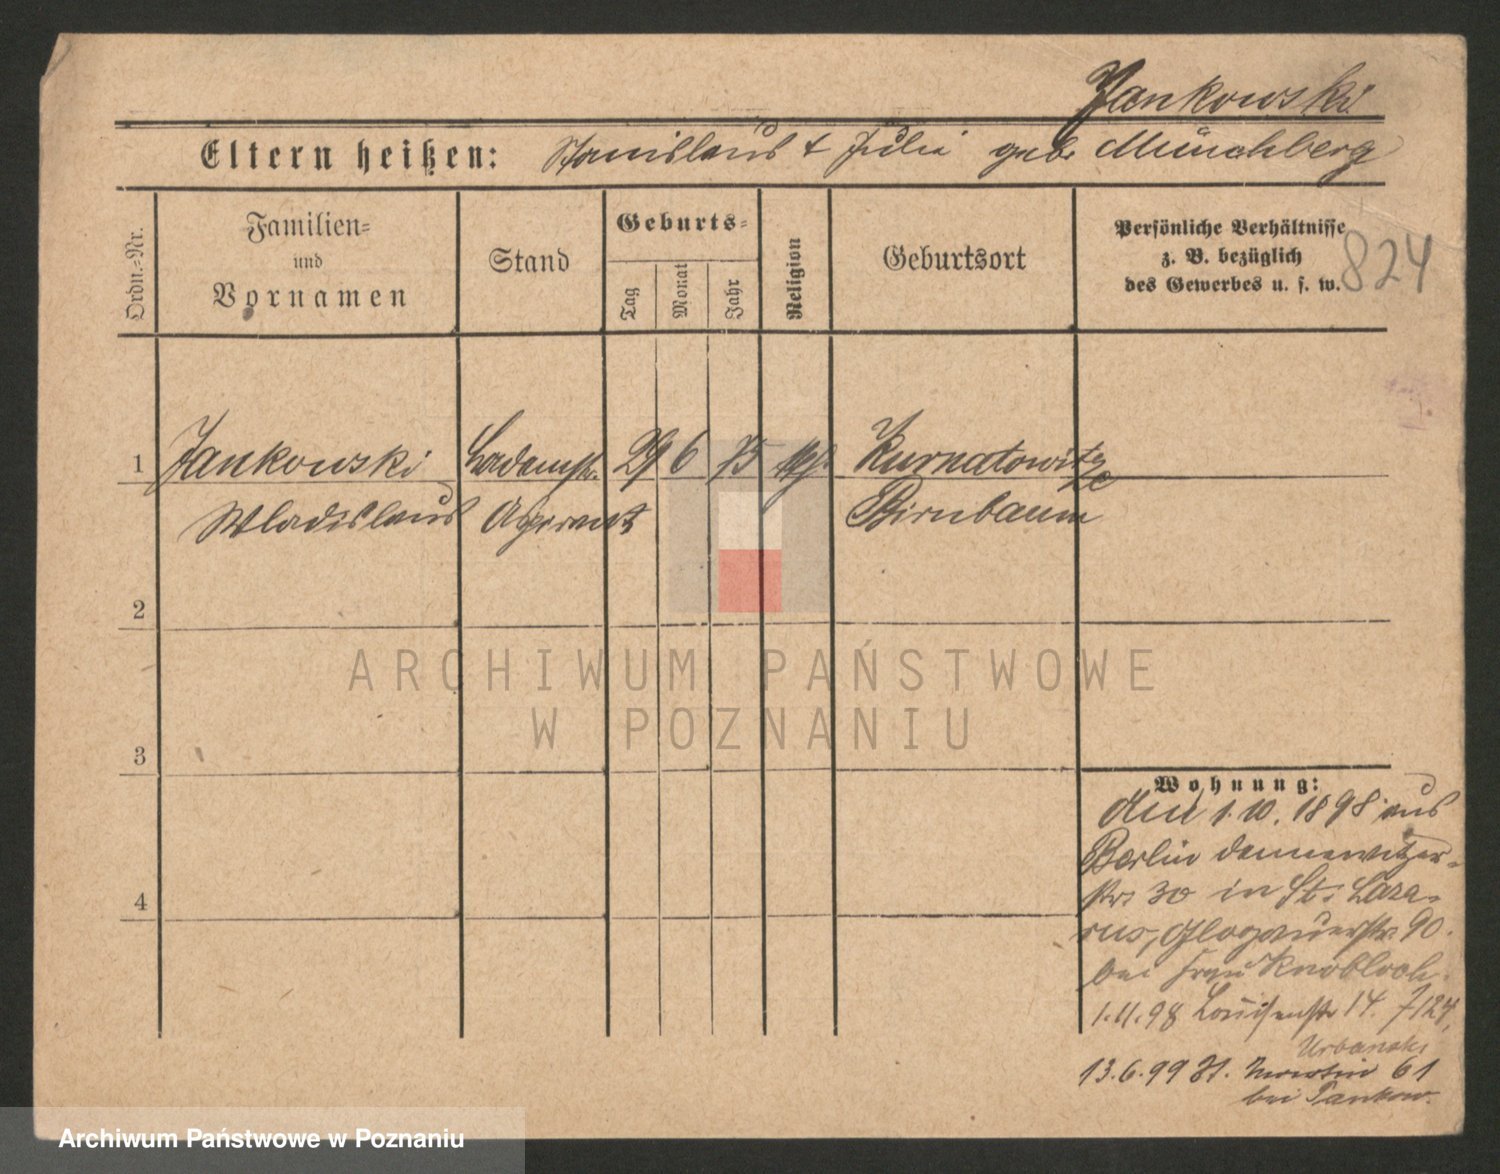 Jankowski
Eltern heißen: Stanislaus & Julia geb. Münchberg
Ordn.-Nr.
Familien-
und
Vornamen
Stand
Geburts-
Tag
Monat
Jahr
Religion
Geburtsort
Persönliche Verhältnisse
z. B. bezüglich
des Gewerbes u. s. w.
824
1
Jankowski
29
6
75
Kurnatowitze
Wladislaus
Birnbaum
2
3
4
ARCHIWUM PAŃSTWOWE
W POZNANIU
Wohnung:
den 1. 10. 1898 aus
Berlin Dennewitzer-
str. 30 in St. Laza-
rus, Glogauerstr. 90.
bei Frau Knobloch.
1.11.98 Louisenstr 14.
Urbanski
13.6.99 St. Martin 61
bei Pankow.
Archiwum Państwowe w Poznaniu